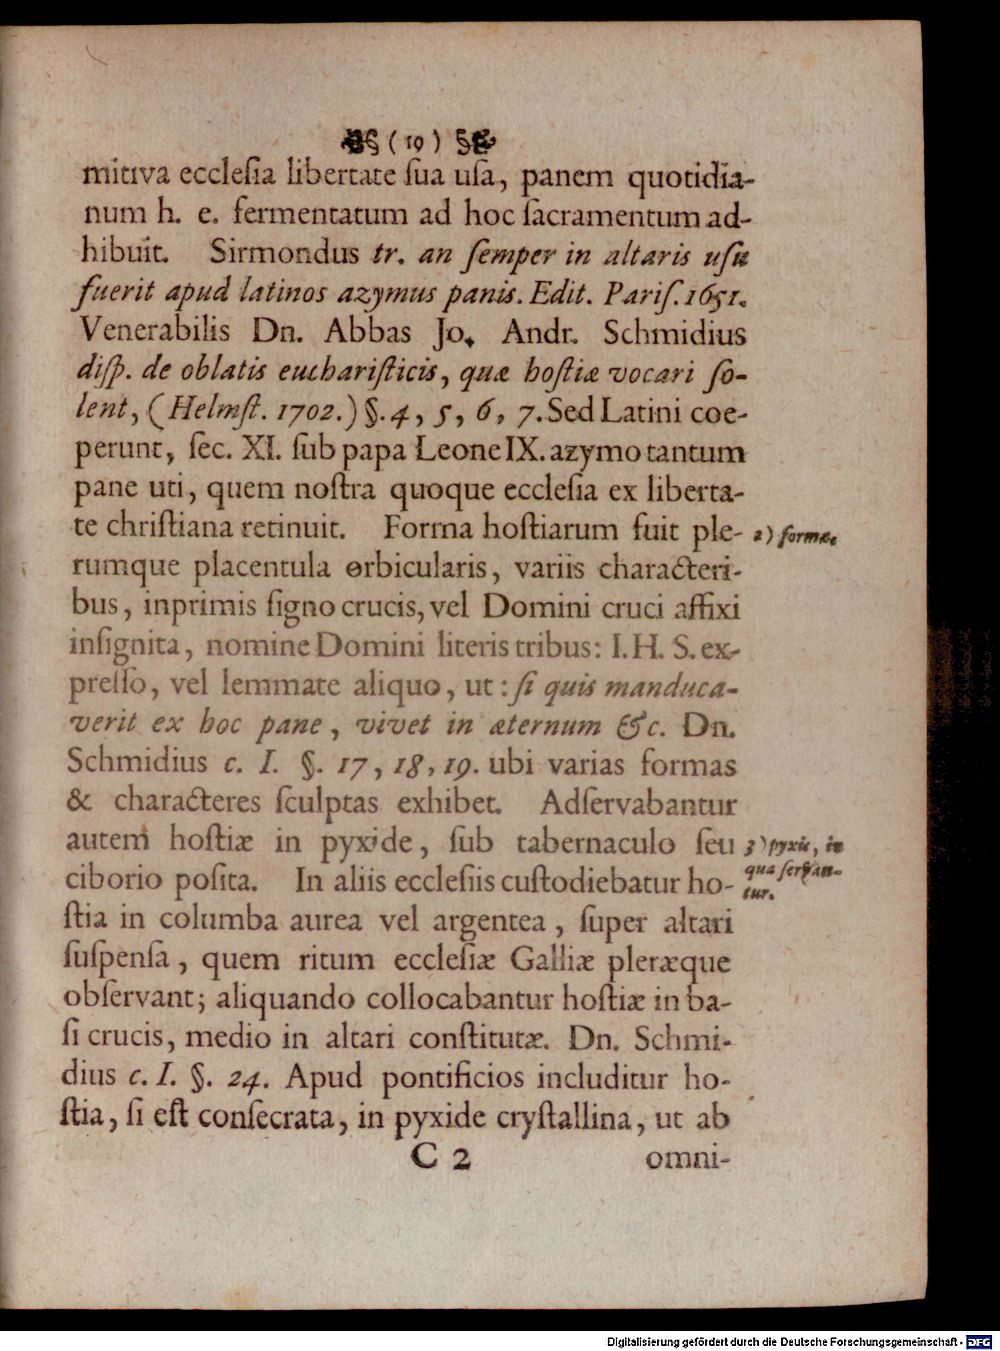 ( 19 )
mitiva ecclesia libertate sua usa, panem quotidia-
num h. e. fermentatum ad hoc sacramentum ad-
hibuit. Sirmondus tr. an semper in altaris usu
fuerit apud latinos azymus panis. Edit. Paris. 1651.
Venerabilis Dn. Abbas Jo. Andr. Schmidius
disp. de oblatis eucharisticis, quæ hostiæ vocari so-
lent, (Helmst. 1702.) §. 4, 5, 6, 7. Sed Latini coe-
perunt, sec. XI. sub papa Leone IX. azymo tantum
pane uti, quem nostra quoque ecclesia ex liberta-
te christiana retinuit. Forma hostiarum fuit ple-
2) forma.
rumque placentula orbicularis, variis characteri-
bus, inprimis signo crucis, vel Domini cruci affixi
insignita, nomine Domini literis tribus: I. H. S. ex-
presso, vel lemmate aliquo, ut: si quis manduca-
verit ex hoc pane, vivet in æternum &c. Dn.
Schmidius c. I. §. 17, 18, 19. ubi varias formas
& characteres sculptas exhibet. Adservabantur
autem hostiæ in pyxide, sub tabernaculo seu
3) pyxis, in
ciborio posita. In aliis ecclesiis custodiebatur ho-
qua servan-
tur.
stia in columba aurea vel argentea, super altari
suspensa, quem ritum ecclesiæ Galliæ pleræque
observant; aliquando collocabantur hostiæ in ba-
si crucis, medio in altari constitutæ. Dn. Schmi-
dius c. I. §. 24. Apud pontificios includitur ho-
stia, si est consecrata, in pyxide crystallina, ut ab
C 2 omni-
Digitalisierung gefördert durch die Deutsche Forschungsgemeinschaft - DFG